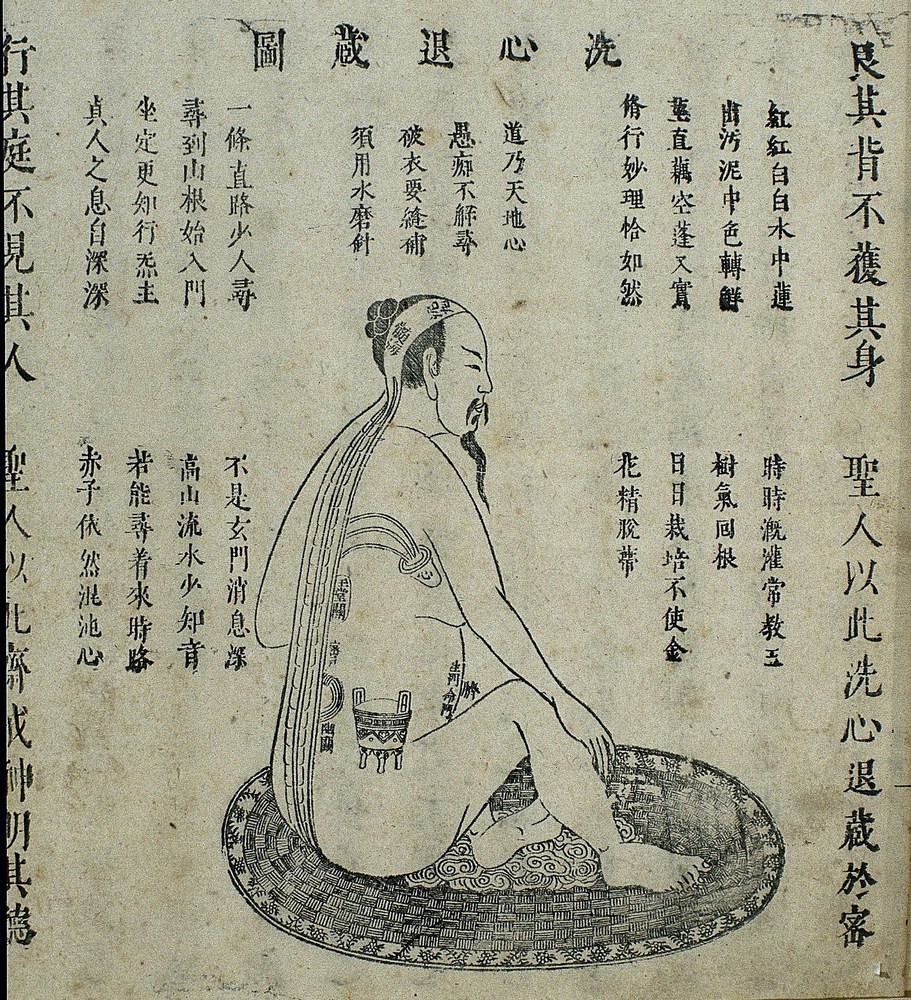 洗心退藏圖
艮其背不獲其身
聖人以此洗心退藏於密
紅紅白白水中蓮
出污泥中色轉鮮
莖直藕空蓬又實
脩行妙理恰如然
時時溉灌常教玉
樹氣回根
日日栽培不使金
花精脫蒂
道乃天地心
愚痴不解尋
破衣要縫補
須用水磨針
臍
幽關
一條直路少人尋
尋到山根始入門
坐定更知行炁主
真人之息自深深
不是玄門消息深
高山流水少知音
若能尋着來時路
赤子依然混沌心
行其庭不見其人
聖人以此齋戒神明其德